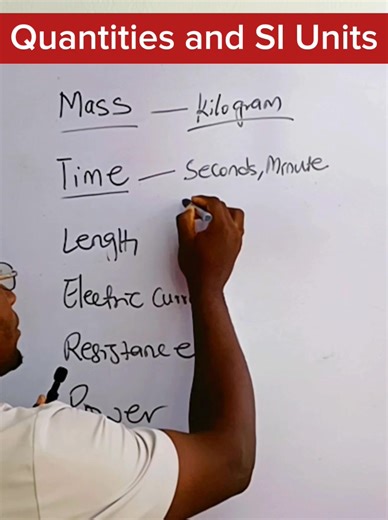 Quantities and SI Units
Mass — Kilogram
Time — Seconds, Minute
Length
Electric Curr
Resistance
Power